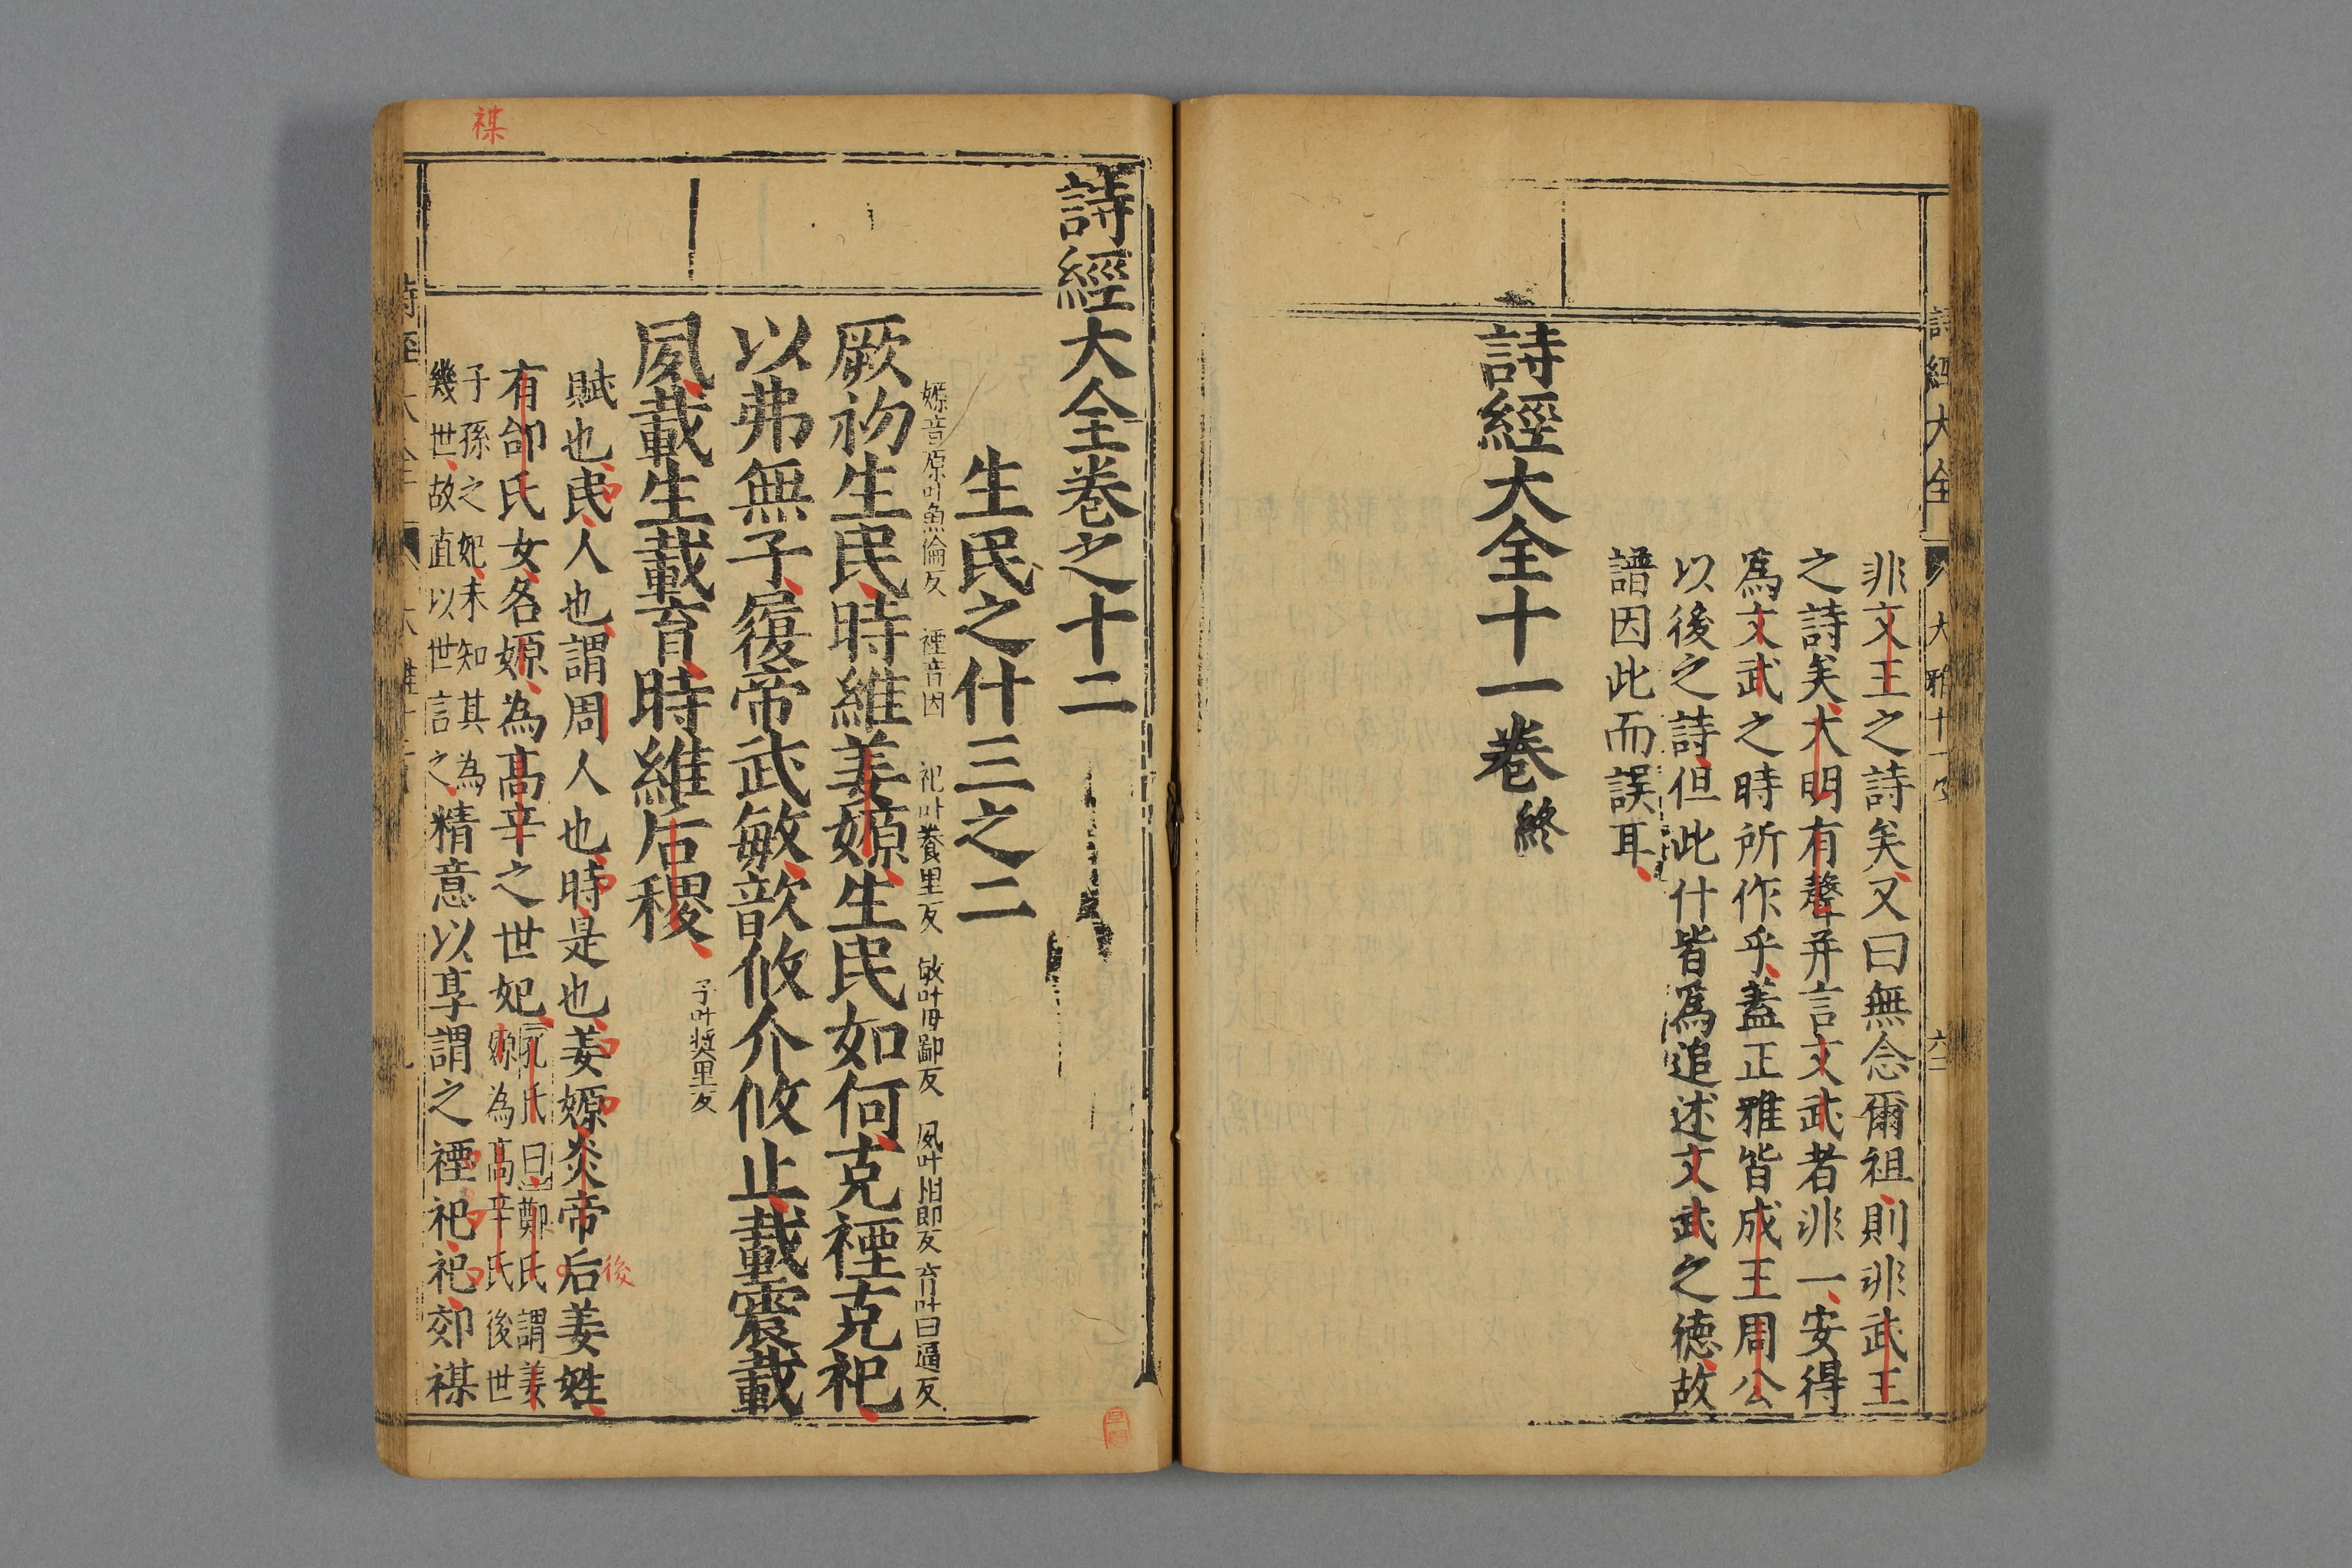 非文王之詩矣又曰無念爾祖則非武王
之詩矣大明有聲并言文武者非一安得
爲文武之時所作乎蓋正雅皆成王周公
以後之詩但此什皆爲追述文武之德故
譜因此而誤耳
詩經大全十一卷終
詩經大全卷之十二
生民之什三之二
嫄音原叶魚倫反 禋音因 祀叶養里反 敏叶母鄙反 夙叶相即反 育叶曰逼反
厥初生民時維姜嫄生民如何克禋克祀
以弗無子履帝武敏歆攸介攸止載震載
夙載生載育時維后稷
子叶獎里反
賦也民人也謂周人也時是也姜嫄炎帝后姜姓
後
有邰氏女名嫄為高辛之世妃
孔氏曰鄭氏謂姜
嫄為高辛氏後世
子孫之妃未知其為
幾世故直以世言之
精意以享謂之禋祀祀郊禖
禖